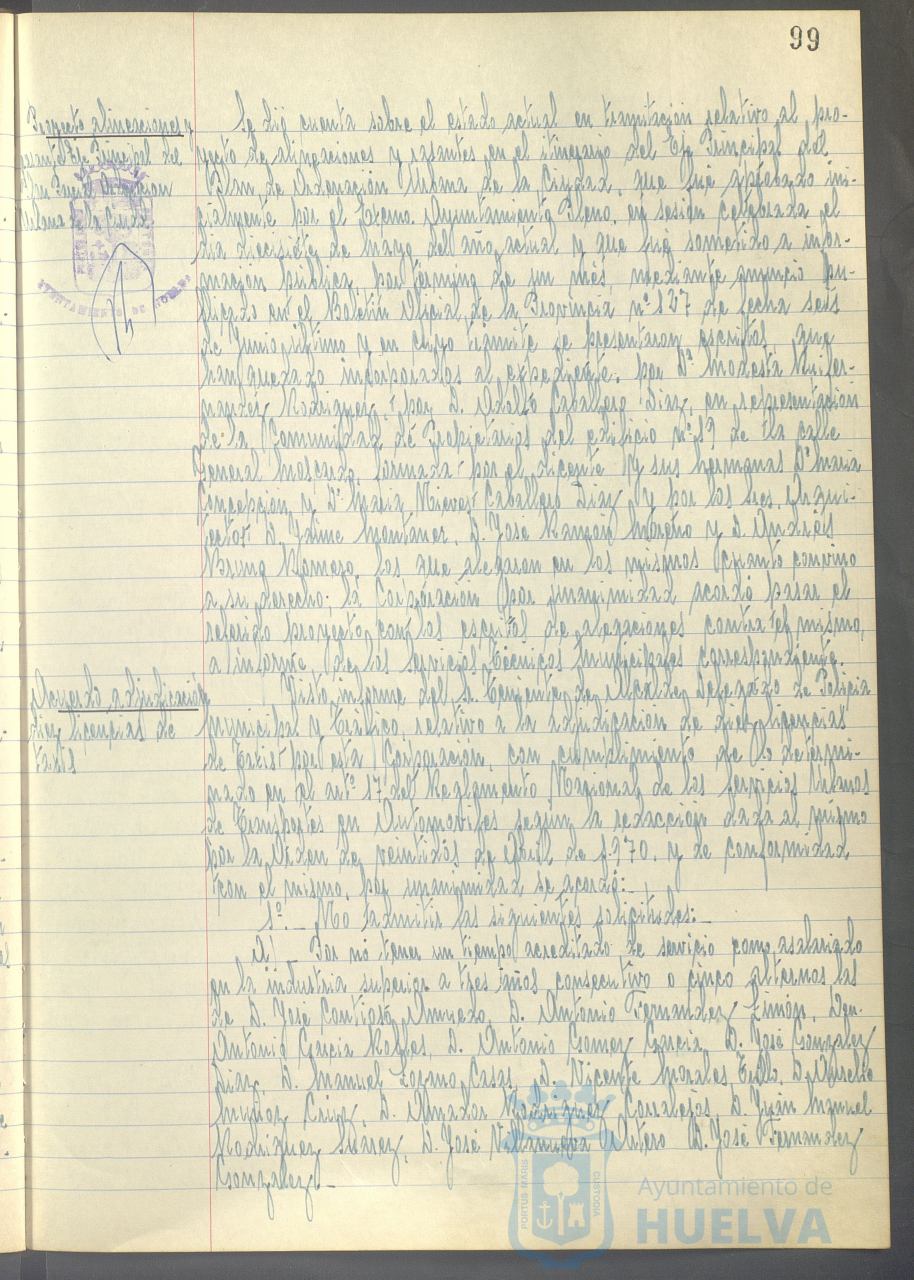 99
Proyecto alineaciones y
rasantes Eje Principal del
Plan General Ordenación
Urbana de la Ciudad
Se dió cuenta sobre el estado actual en tramitación relativo al pro-
yecto de alineaciones y rasantes en el itinerario del Eje Principal del
Plan de Ordenación Urbana de la Ciudad, que fue aprobado ini-
cialmente por el Excmo. Ayuntamiento Pleno, en sesión celebrada el
día diecisiete de mayo del año actual y que fué sometido a infor-
mación pública por término de un mes mediante anuncio pu-
blicado en el Boletín Oficial de la Provincia nº 137 de fecha seis
de Junio último y en cuyo trámite se presentaron escritos, que
han quedado incorporados al expediente, por Dª Modesta
Rodriguez, por D. Adolfo Caballero Diaz, en representación
de la Comunidad de Propietarios del edificio nº 19 de la calle
General Moscardó, formada por el dicente y sus hermanas Dª Maria
Concepción y Dª Maria Nieves Caballero Diaz y por los Sres. Arqui-
tectos D. Jaime Montaner, D. José Ramón Moreno y D. Andrés
Bruno Romero, los que alegaron en los mismos cuanto convino
a su derecho; la Corporación por unanimidad acordó pasar el
referido proyecto con los escritos de alegaciones contra el mismo,
a informe de los Servicios Técnicos Municipales correspondiente.
Acuerdo adjudicación
diez licencias de
taxis
Visto informe del Sr. Teniente de Alcalde Delegado de Policía
Municipal y Tráfico, relativo a la adjudicación de diez licencias
de taxist por esta Corporación, con cumplimiento de lo determi-
nado en el artº 17 del Reglamento Nacional de los Servicios Urbanos
de Transportes en Automoviles segun la redacción dada al mismo
por la Orden de veintidós de Abril de 1.970, y de conformidad
con el mismo, por unanimidad se acordó:-
1º.- No admitir las siguientes solicitudes:-
A) Por no tener un tiempo acreditado de servicio como asalariado
en la industria superior a tres años consecutivo o cinco alternos las
de D. José Contioso Amuedo, D. Antonio Fernandez Limón, Don
Antonio Garcia Robles, D. Antonio Gomez Garcia, D. José Gonzalez
Diaz, D. Manuel Lozano Casas, D. Vicente Morales Tello, D. Aurelio
Muñoz Cruz, D. Amador Rodriguez Corralejos, D. Juan Manuel
Rodriguez Suárez, D. José Villanueva Otero D. José Fernandez
Gonzalez.-
AYUNTAMIENTO DE HUELVA
PORTUS MARIS CUSTODIA
Ayuntamiento de
HUELVA